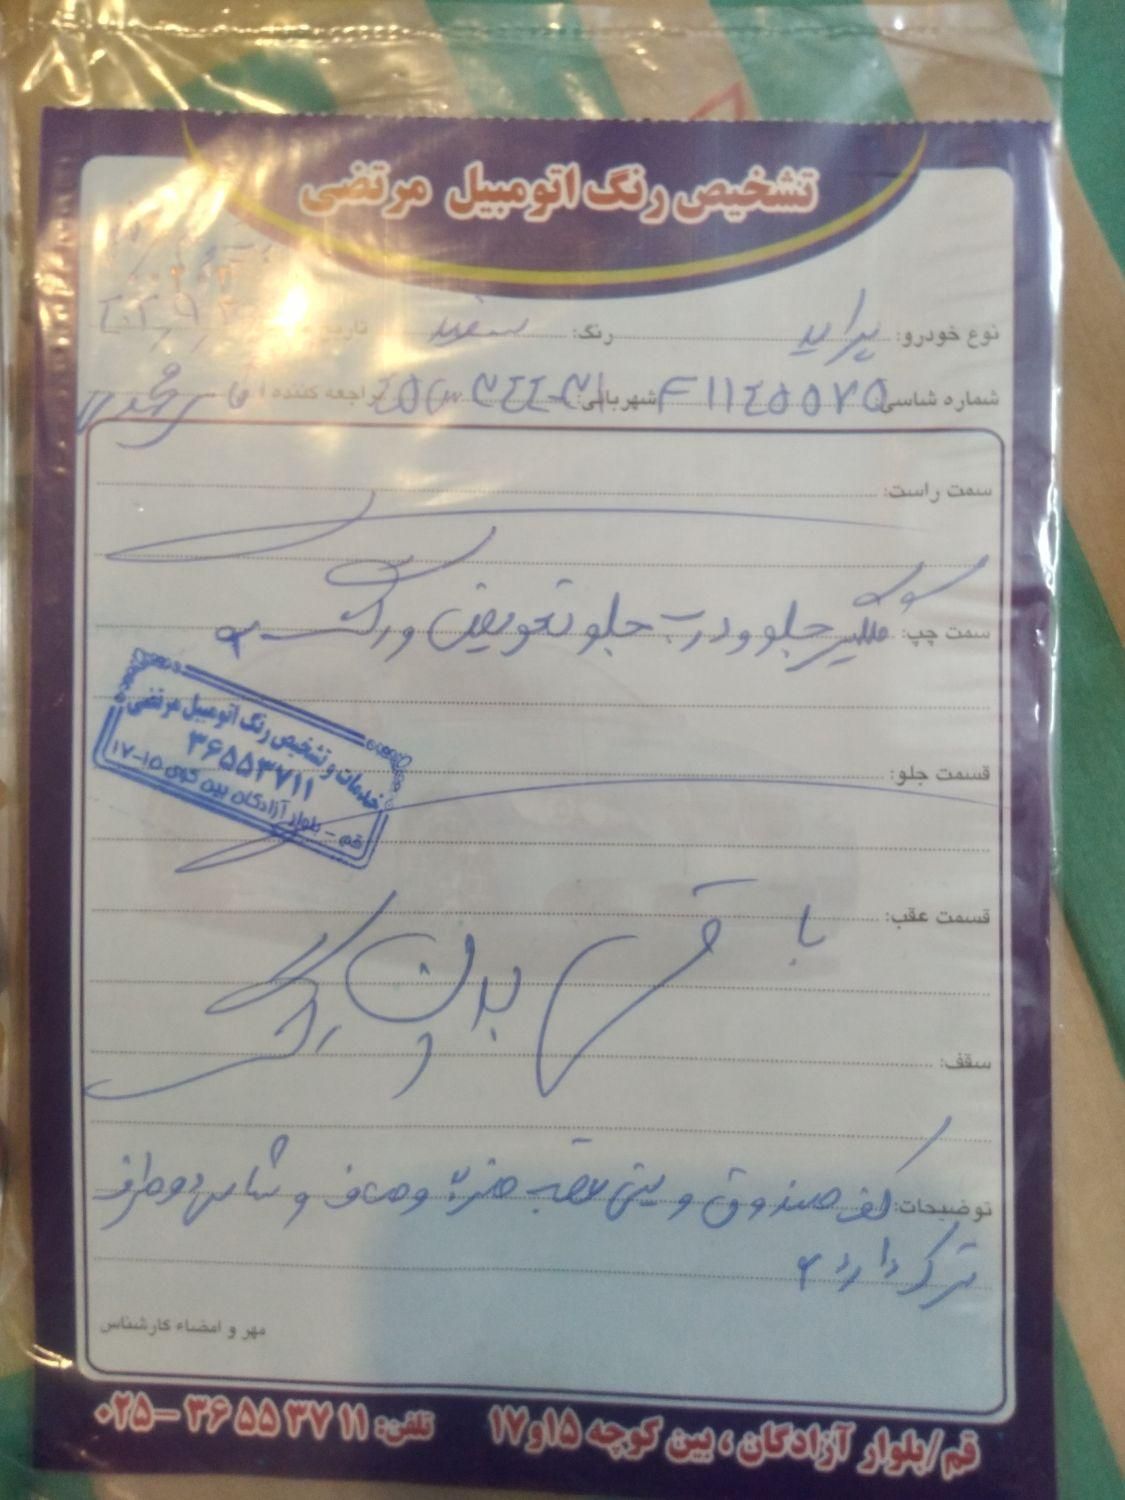 تشخیص رنگ اتومبیل مرتضی
نوع خودرو: پراید رنگ: سفید تاریخ
شماره شاسی: شهربانی: مراجعه کننده:
سمت راست:
سمت چپ: گلگیر جلو و درب جلو تعویض و رنگ است
خدمات و تشخیص رنگ اتومبیل مرتضی
۳۶۵۵۳۷۱۱
قم - بلوار آزادگان بین کوی ۱۵-۱۷
قسمت جلو:
قسمت عقب: با
بدن رنگ
سقف:
توضیحات: کف صندوق و سینی عقب ضربه و صاف و شاسی دو طرف
ترک دارد
مهر و امضاء کارشناس
قم/بلوار آزادگان، بین کوچه ۱۵و۱۷ تلفن: ۳۶۵۵۳۷۱۱-۰۲۵